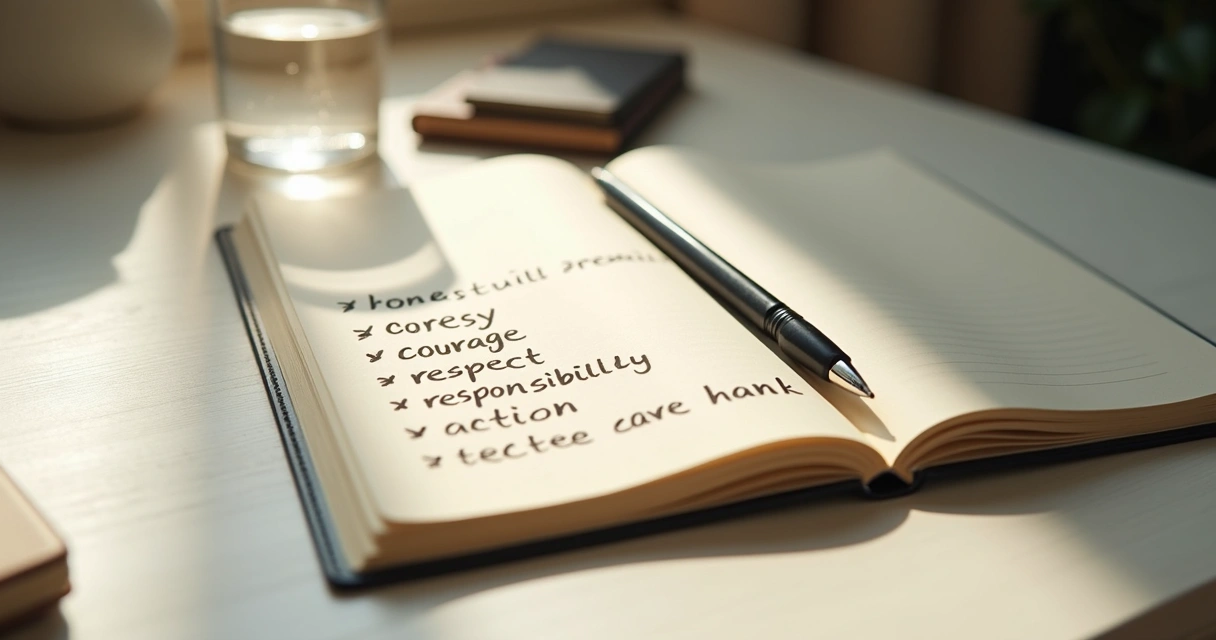 coresy
courage
respect
responsibillly
action
tectee cave hank